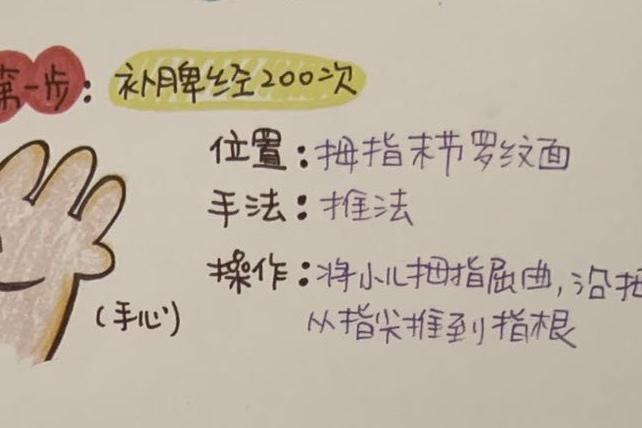 第一步：补脾经200次
位置：拇指末节罗纹面
手法：推法
操作：将小儿拇指屈曲，沿拇
从指尖推到指根
(手心)